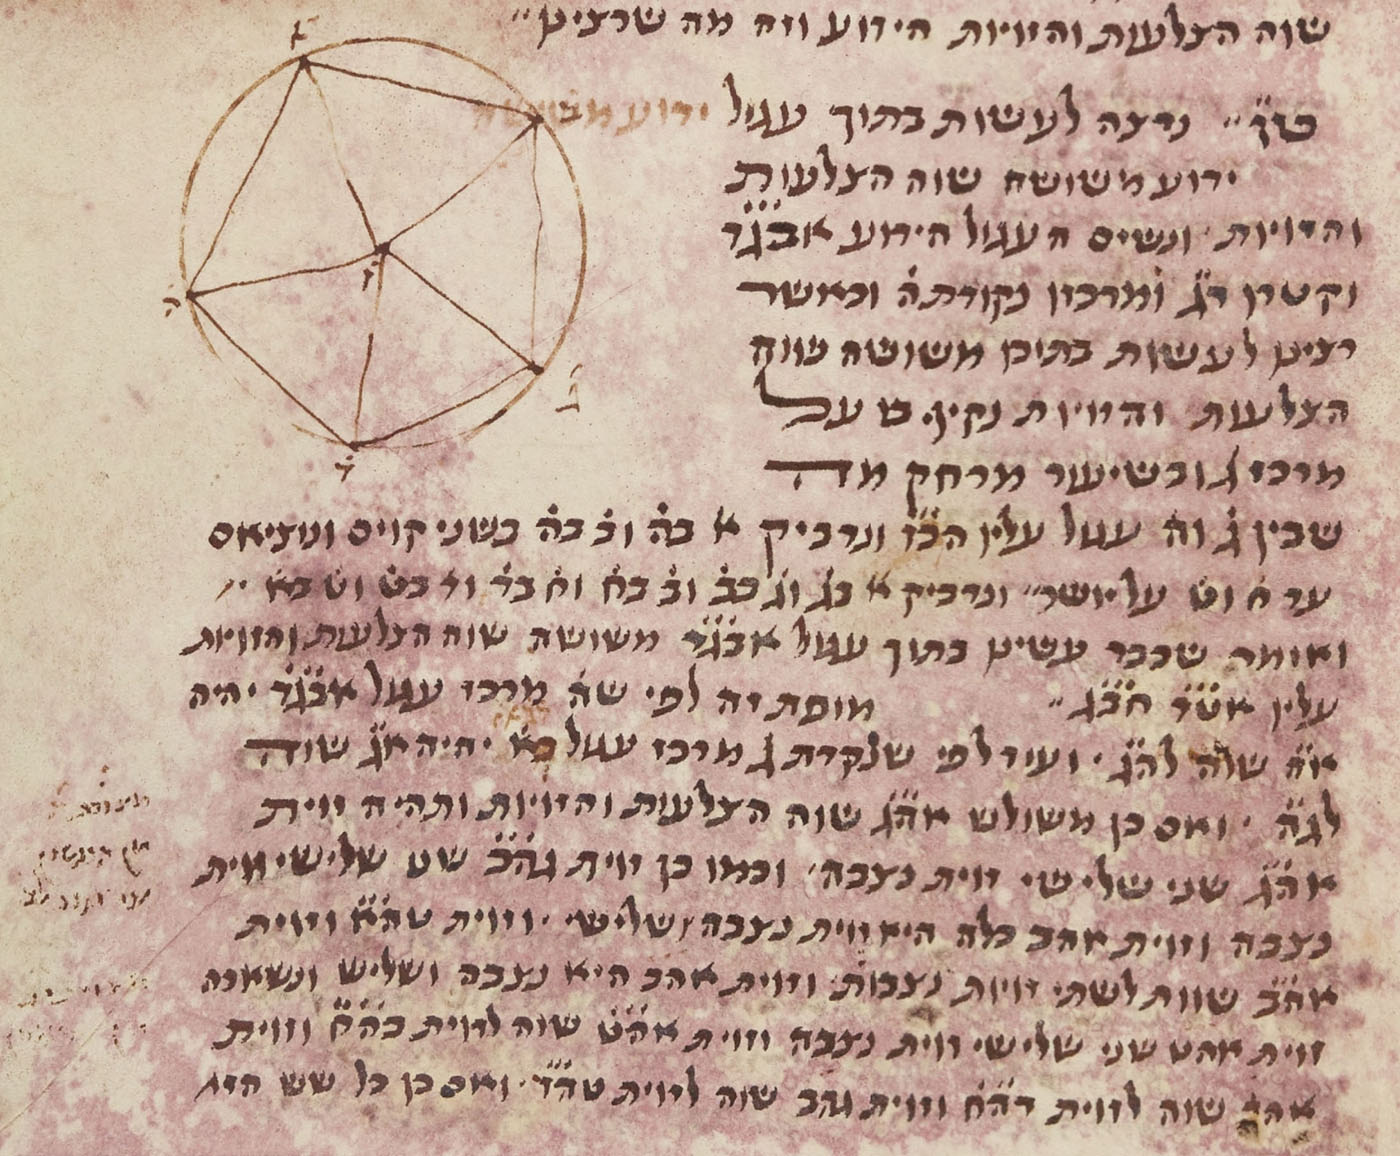 שוה הצלעות והזויות הידוע וזה מה שרצינו
טו נרצה לעשות בתוך עגול ידוע
ידוע משושה שוה הצלעות
והזויות ונשים העגול הידוע אבגד
וקטרו דג ומרכזו נקודת ה וכאשר
רצינו לעשות בתוכו משושה שוה
הצלעות והזויות נקיף על
מרכז ג ובשיעור מרחק מה
שבין ג וה עגול עליו ונדביק א בה וב בה בשני קוים ונוציאם
עד ח וט על יושר ונדביק א בג וג בב וב בח וח בד וד בט וט בא
ואומר שכבר עשינו בתוך עגול אבגד משושה שוה הצלעות והזויות
עליו אטד חבג מופת זה לפי שה מרכז עגול אבגד יהיה
אה שוה להג ועוד לפי שנקדת ג מרכז עגול יהיה אג שוה
לגה ואם כן משולש אהג שוה הצלעות והזויות ותהיה זוית
אהג שני שלישי זוית נצבה וכמו כן זוית גהב שני שלישי זוית
נצבה וזוית אהב כלה היא זוית נצבה ושליש וזוית טהא וזוית
אהב שוות לשתי זויות נצבות וזוית אהב היא נצבה ושליש ונשארה
זוית אהט שני שלישי זוית נצבה וזוית אהט שוה לזוית בהח וזוית
אהג שוה לזוית דהח וזוית גהב שוה לזוית טהד ואם כן כל שש הזוי
א
ה
ד
ב